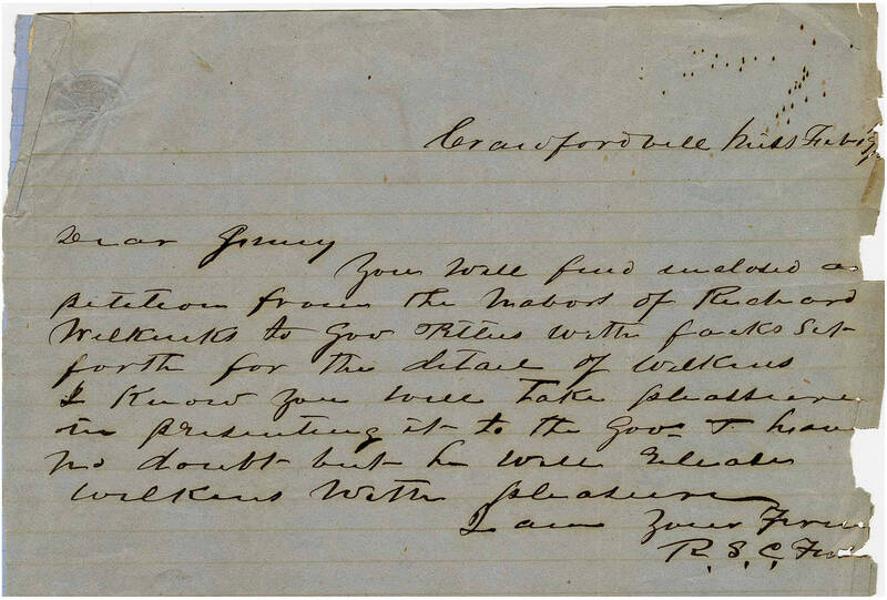 Crawfordvill Miss Feb 19
Dear Jimmy
You will find inclosed a
petition from the Nabors of Richard
Wilkinks to Gov Pettus with facks set
forth for the detail of Wilkins
I Know you will take pleasure
in presenting it to the Gov I have
no doubt but he will release
Wilkins with pleasure
I am your
R. S. C.